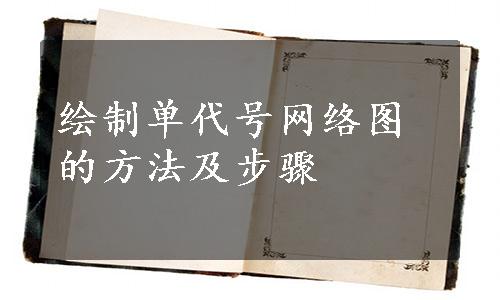 绘制单代号网络图
的方法及步骤